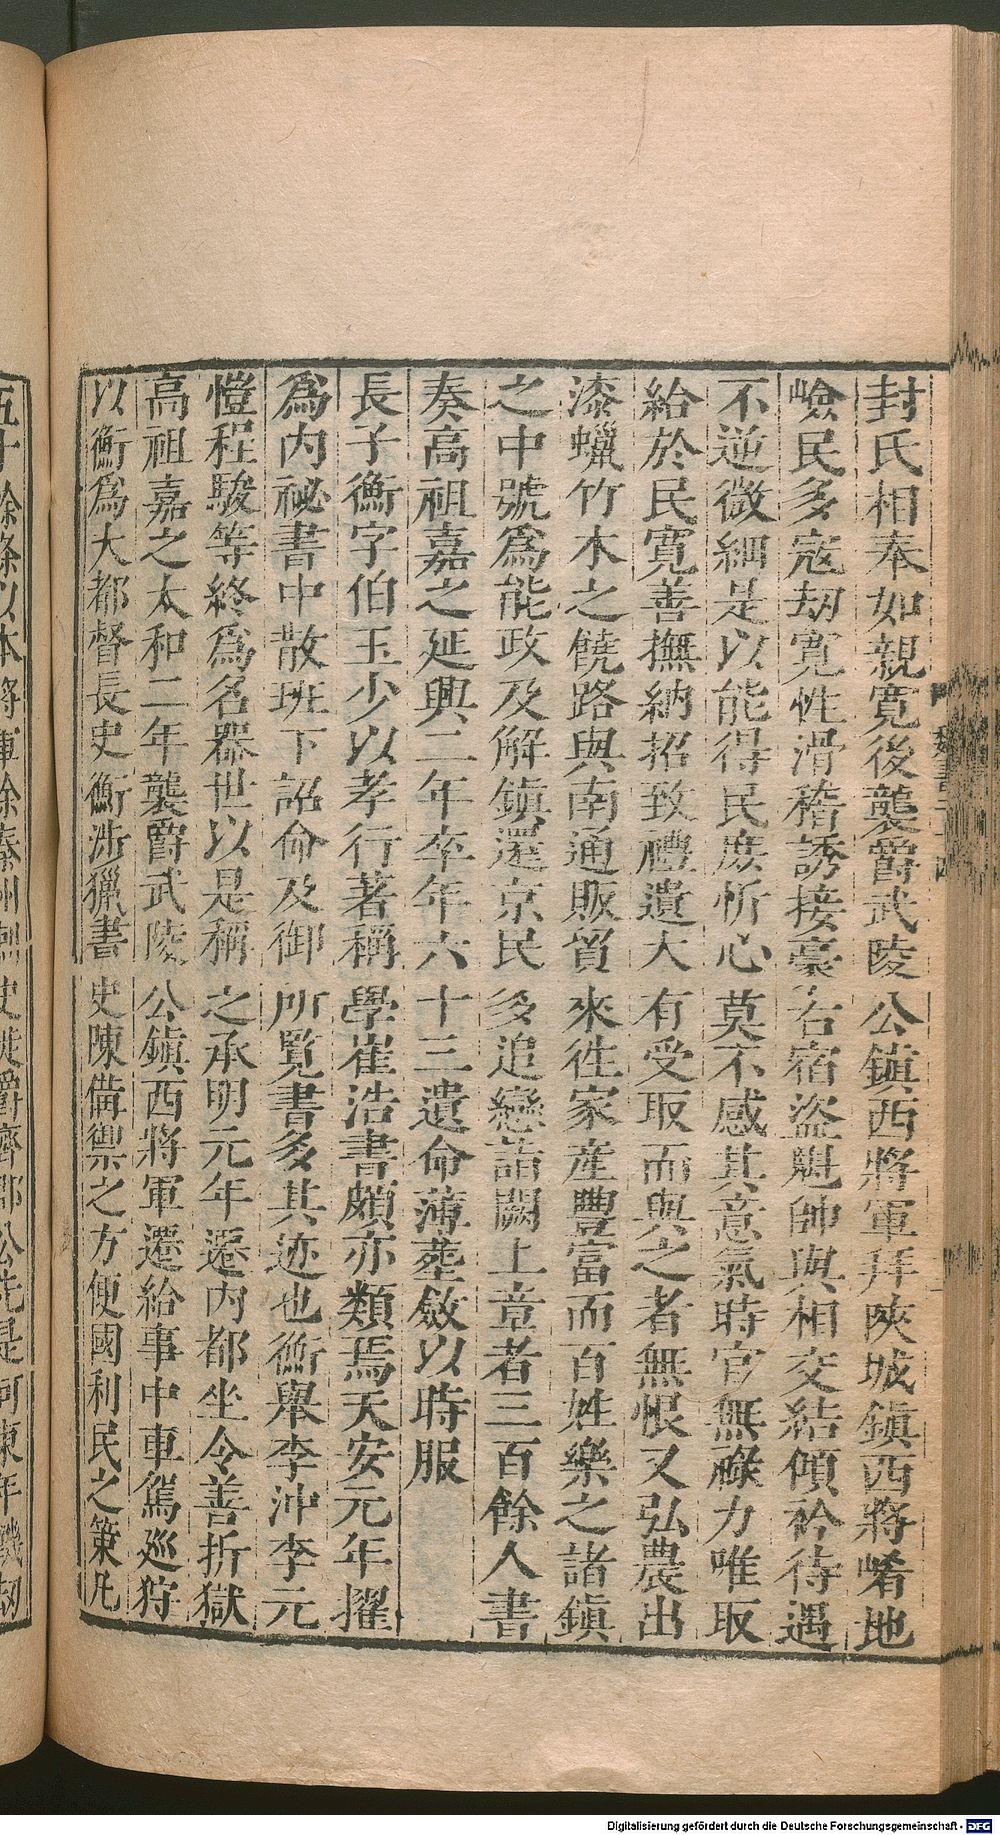 封氏相奉如親寛後襲爵武陵公鎮西將軍拜陜城鎮西將崤地
嶮民多寇刼寛性滑稽誘接豪右宿盜魁帥與相交結傾衿待遇
不逆微細是以能得民庶忻心莫不感其意氣時官無祿力唯取
給於民寛善撫納招致禮遺大有受取而與之者無恨又弘農出
漆蠟竹木之饒路與南通販貿來徃家產豐富而百姓樂之諸鎮
之中號爲能政及解鎮還京民多追戀詣闕上章者三百餘人書
奏高祖嘉之延興二年卒年六十三遺命薄葬斂以時服
長子衡字伯玉少以孝行著稱學崔浩書頗亦類焉天安元年擢
爲内祕書中散班下詔命及御所覽書多其迹也衡舉李沖李元
愷程駿等終爲名器世以是稱之承明元年遷内都坐令善折獄
高祖嘉之太和二年襲爵武陵公鎮西將軍遷給事中車駕巡狩
以衡爲大都督長史衡涉獵書史陳備禦之方便國利民之策凡
五十餘條以本將軍除秦州刺史徙爵齊郡公先是河東年饑刼
Digitalisierung gefördert durch die Deutsche Forschungsgemeinschaft - DFG